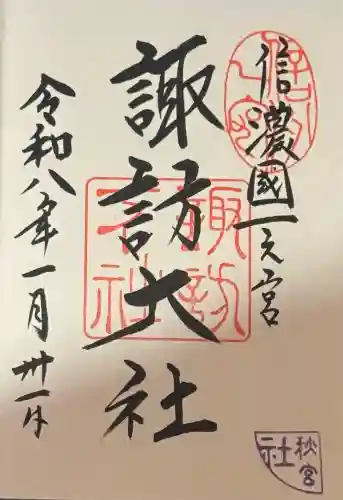 信濃國一之宮
諏訪大社
令和八年一月卅一日
諏訪大社
秋宮
社